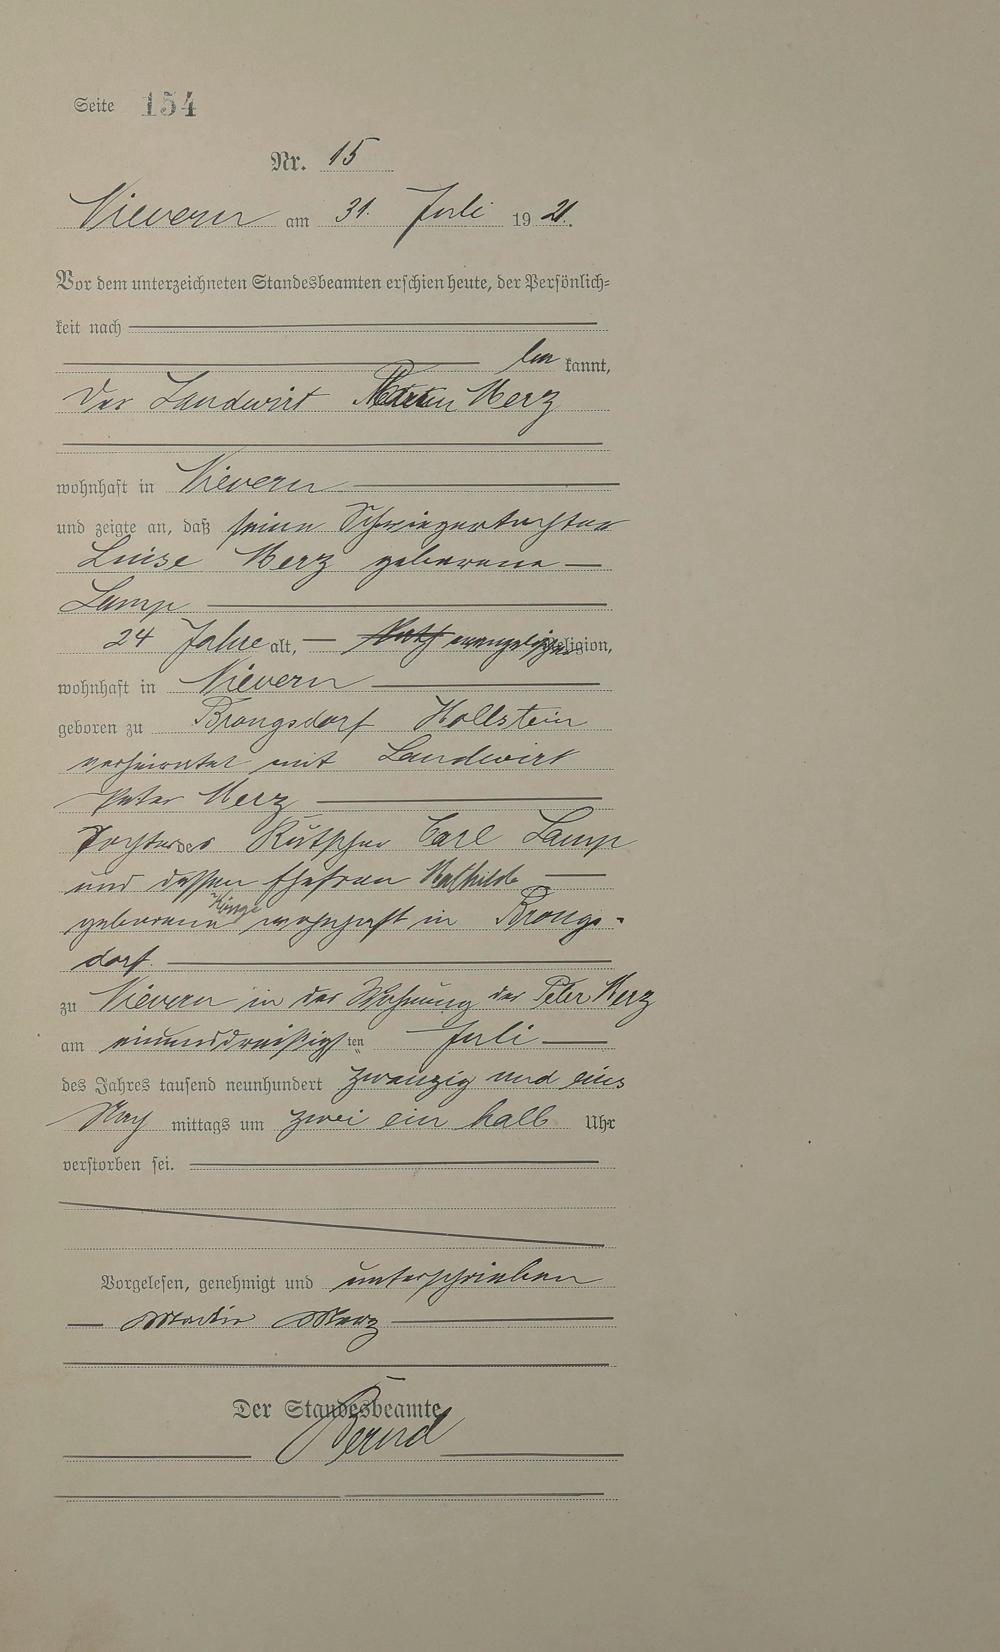 Seite 154
Nr. 15
Nievern am 31. Juli 1921.
Vor dem unterzeichneten Standesbeamten erschien heute, der Persönlich=
keit nach
be kannt,
der Landwirt Martin Merz
wohnhaft in Nievern
und zeigte an, daß seine Schwiegertochter
Luise Merz geborene
Lamp
24 Jahre alt, evangelischer Religion,
wohnhaft in Nievern
geboren zu Brongsdorf Hollstein
verheiratet mit Landwirt
Peter Merz
Tochter des Kutscher Carl Lamp
und dessen Ehefrau Mathilde
geborene wohnhaft in Brongs-
dorf.
zu Nievern in der Wohnung des Peter Merz
am einunddreißigsten Juli
des Jahres tausend neunhundert zwanzig und eins
Nach mittags um zwei ein halb Uhr
verstorben sei.
Vorgelesen, genehmigt und unterschrieben
Martin Merz
Der Standesbeamte
Bernd